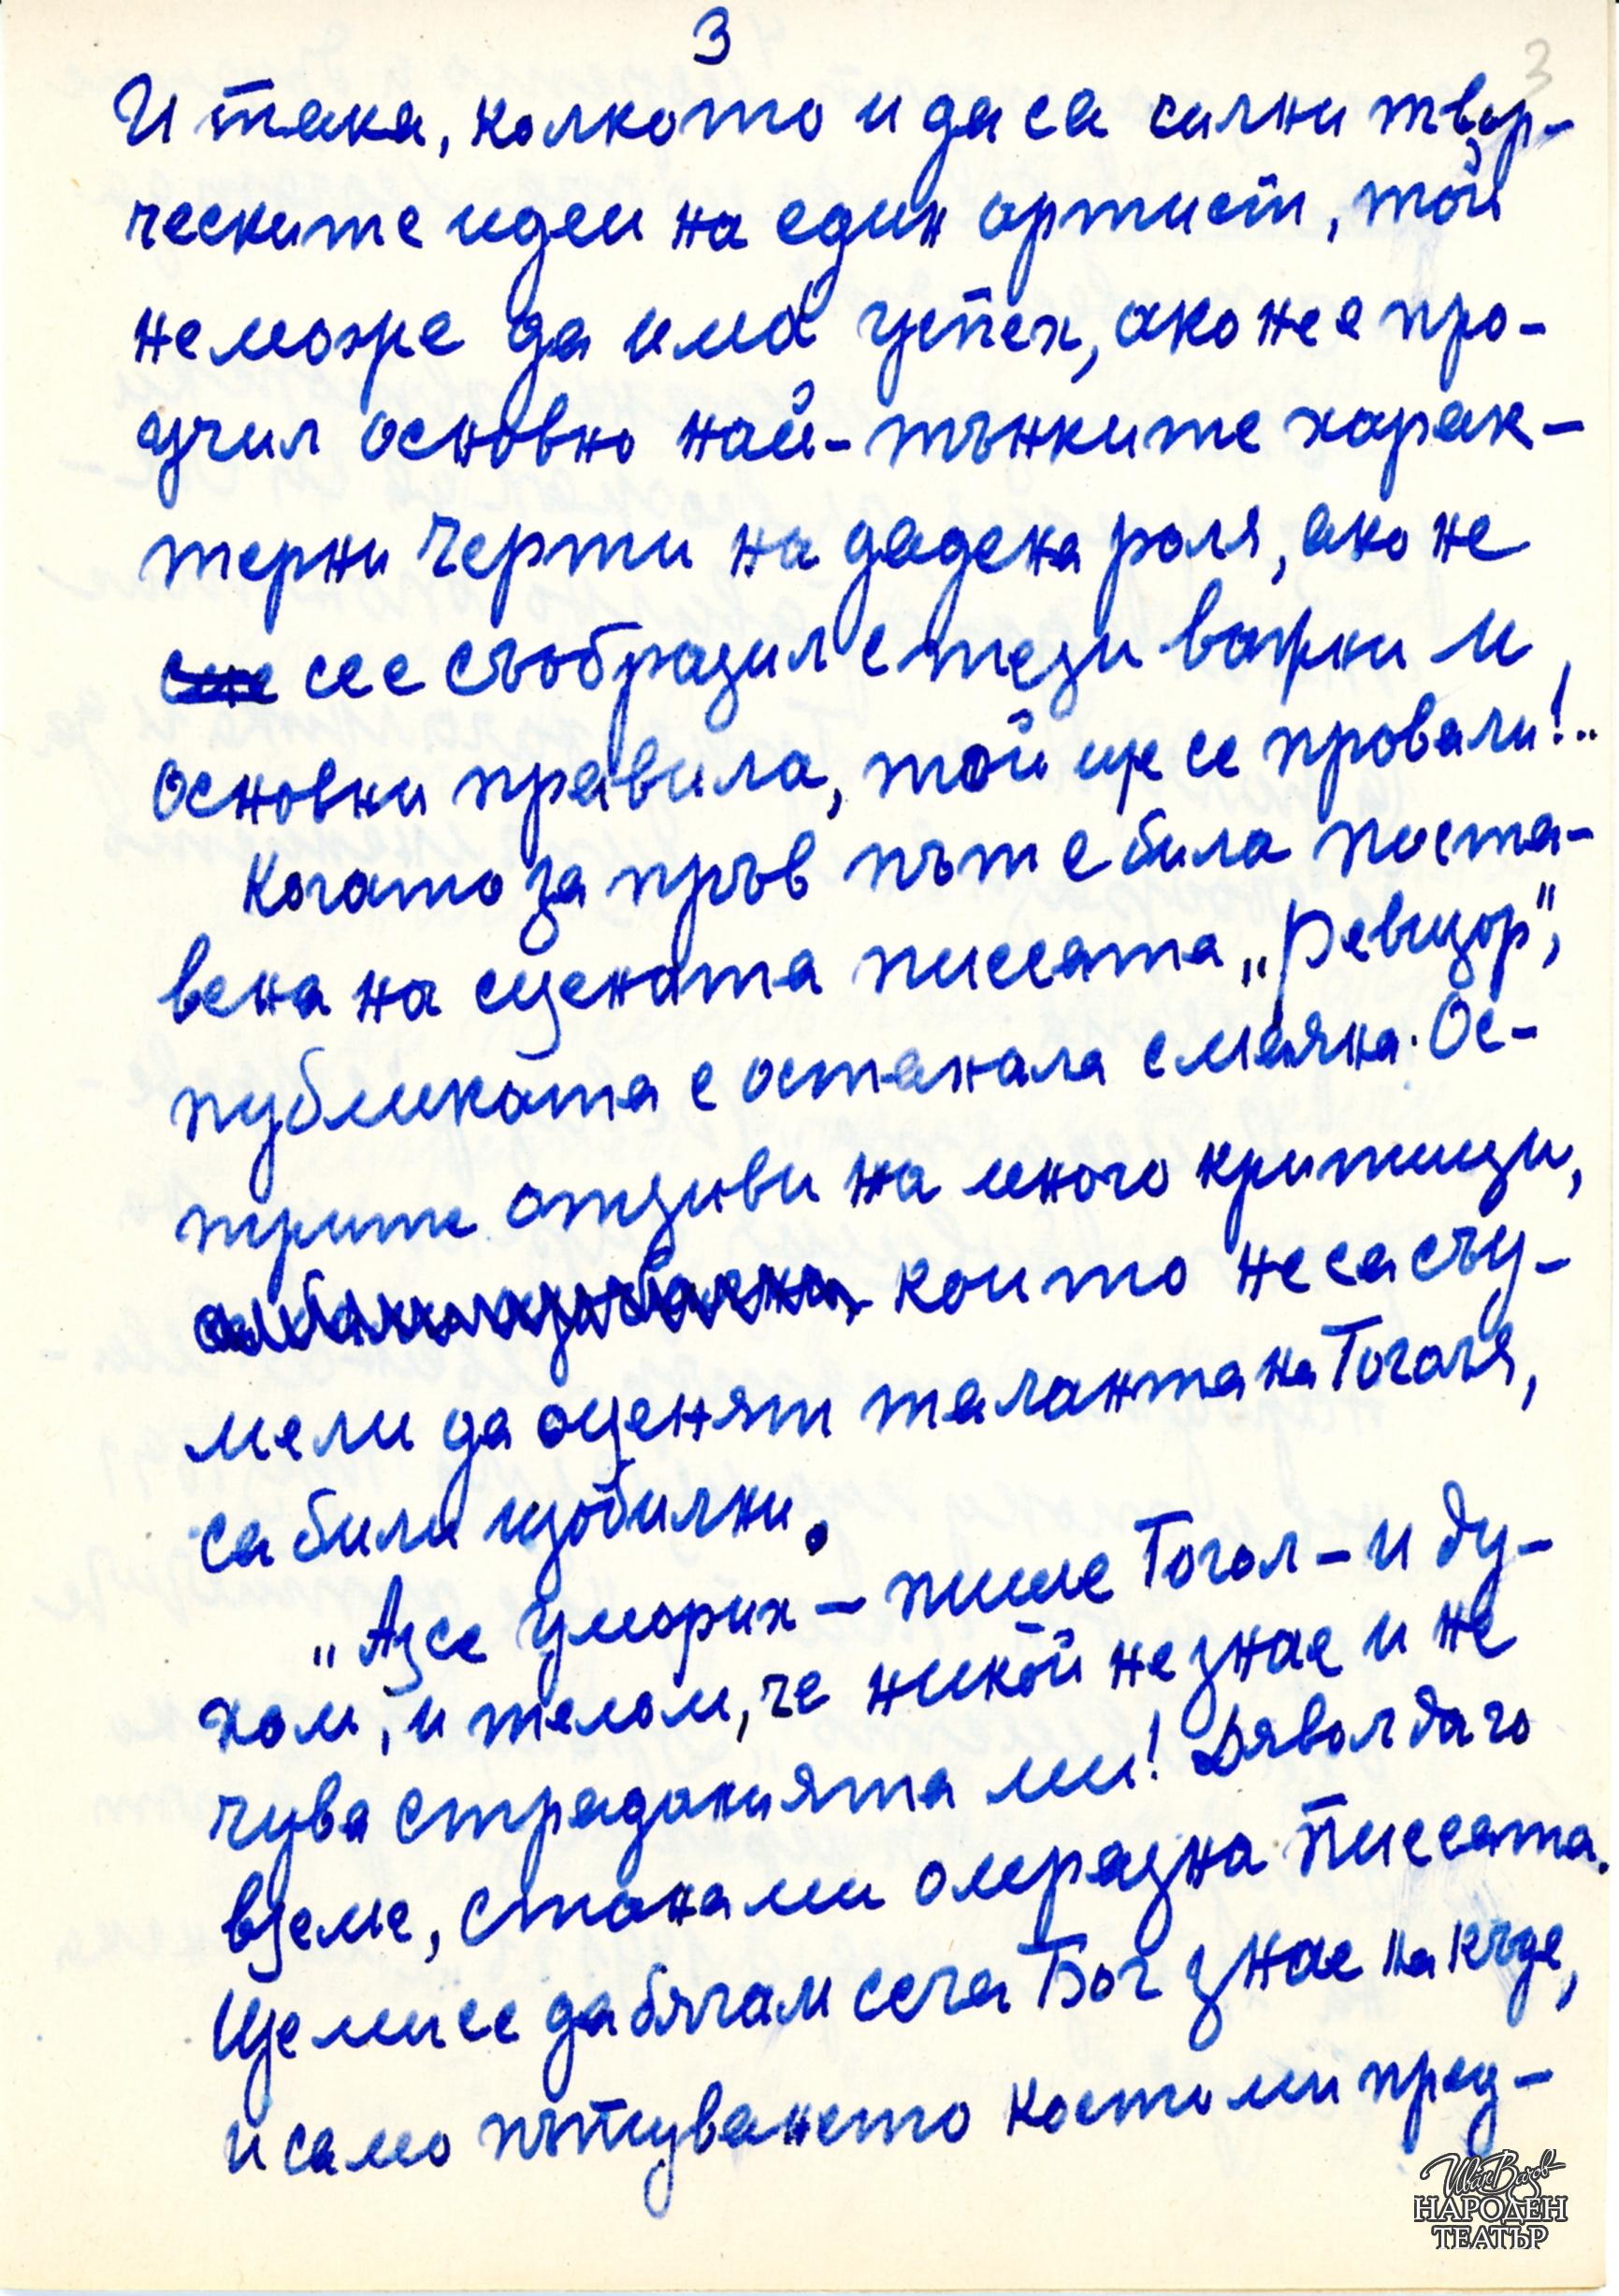 3
3
И така, колкото и да са силни твор-
ческите идеи на един артист, той
не може да има успех, ако не е про-
учил основно най-тънките харак-
терни черти на дадена роля, ако не
се е съобразил с тези важни и
основни правила, той ще се провали!..
Когато за пръв път е била поста-
вена на сцената пиесата „Ревизор“,
публиката е останала смаяна. Ос-
трите отзиви на много критици,
които не са съу-
мели да оценят таланта на Гоголя,
са били изобилни.
„Аз се уморих – пише Гогол – и ду-
хом, и телом, че никой не знае и не
чува страданията ми! Дявол да го
вземе, стана ми омразна пиесата.
Ще ми се да бягам сега Бог знае накъде,
и само пътуването което ми пред-
Иван Вазов
НАРОДЕН
ТЕАТЪР